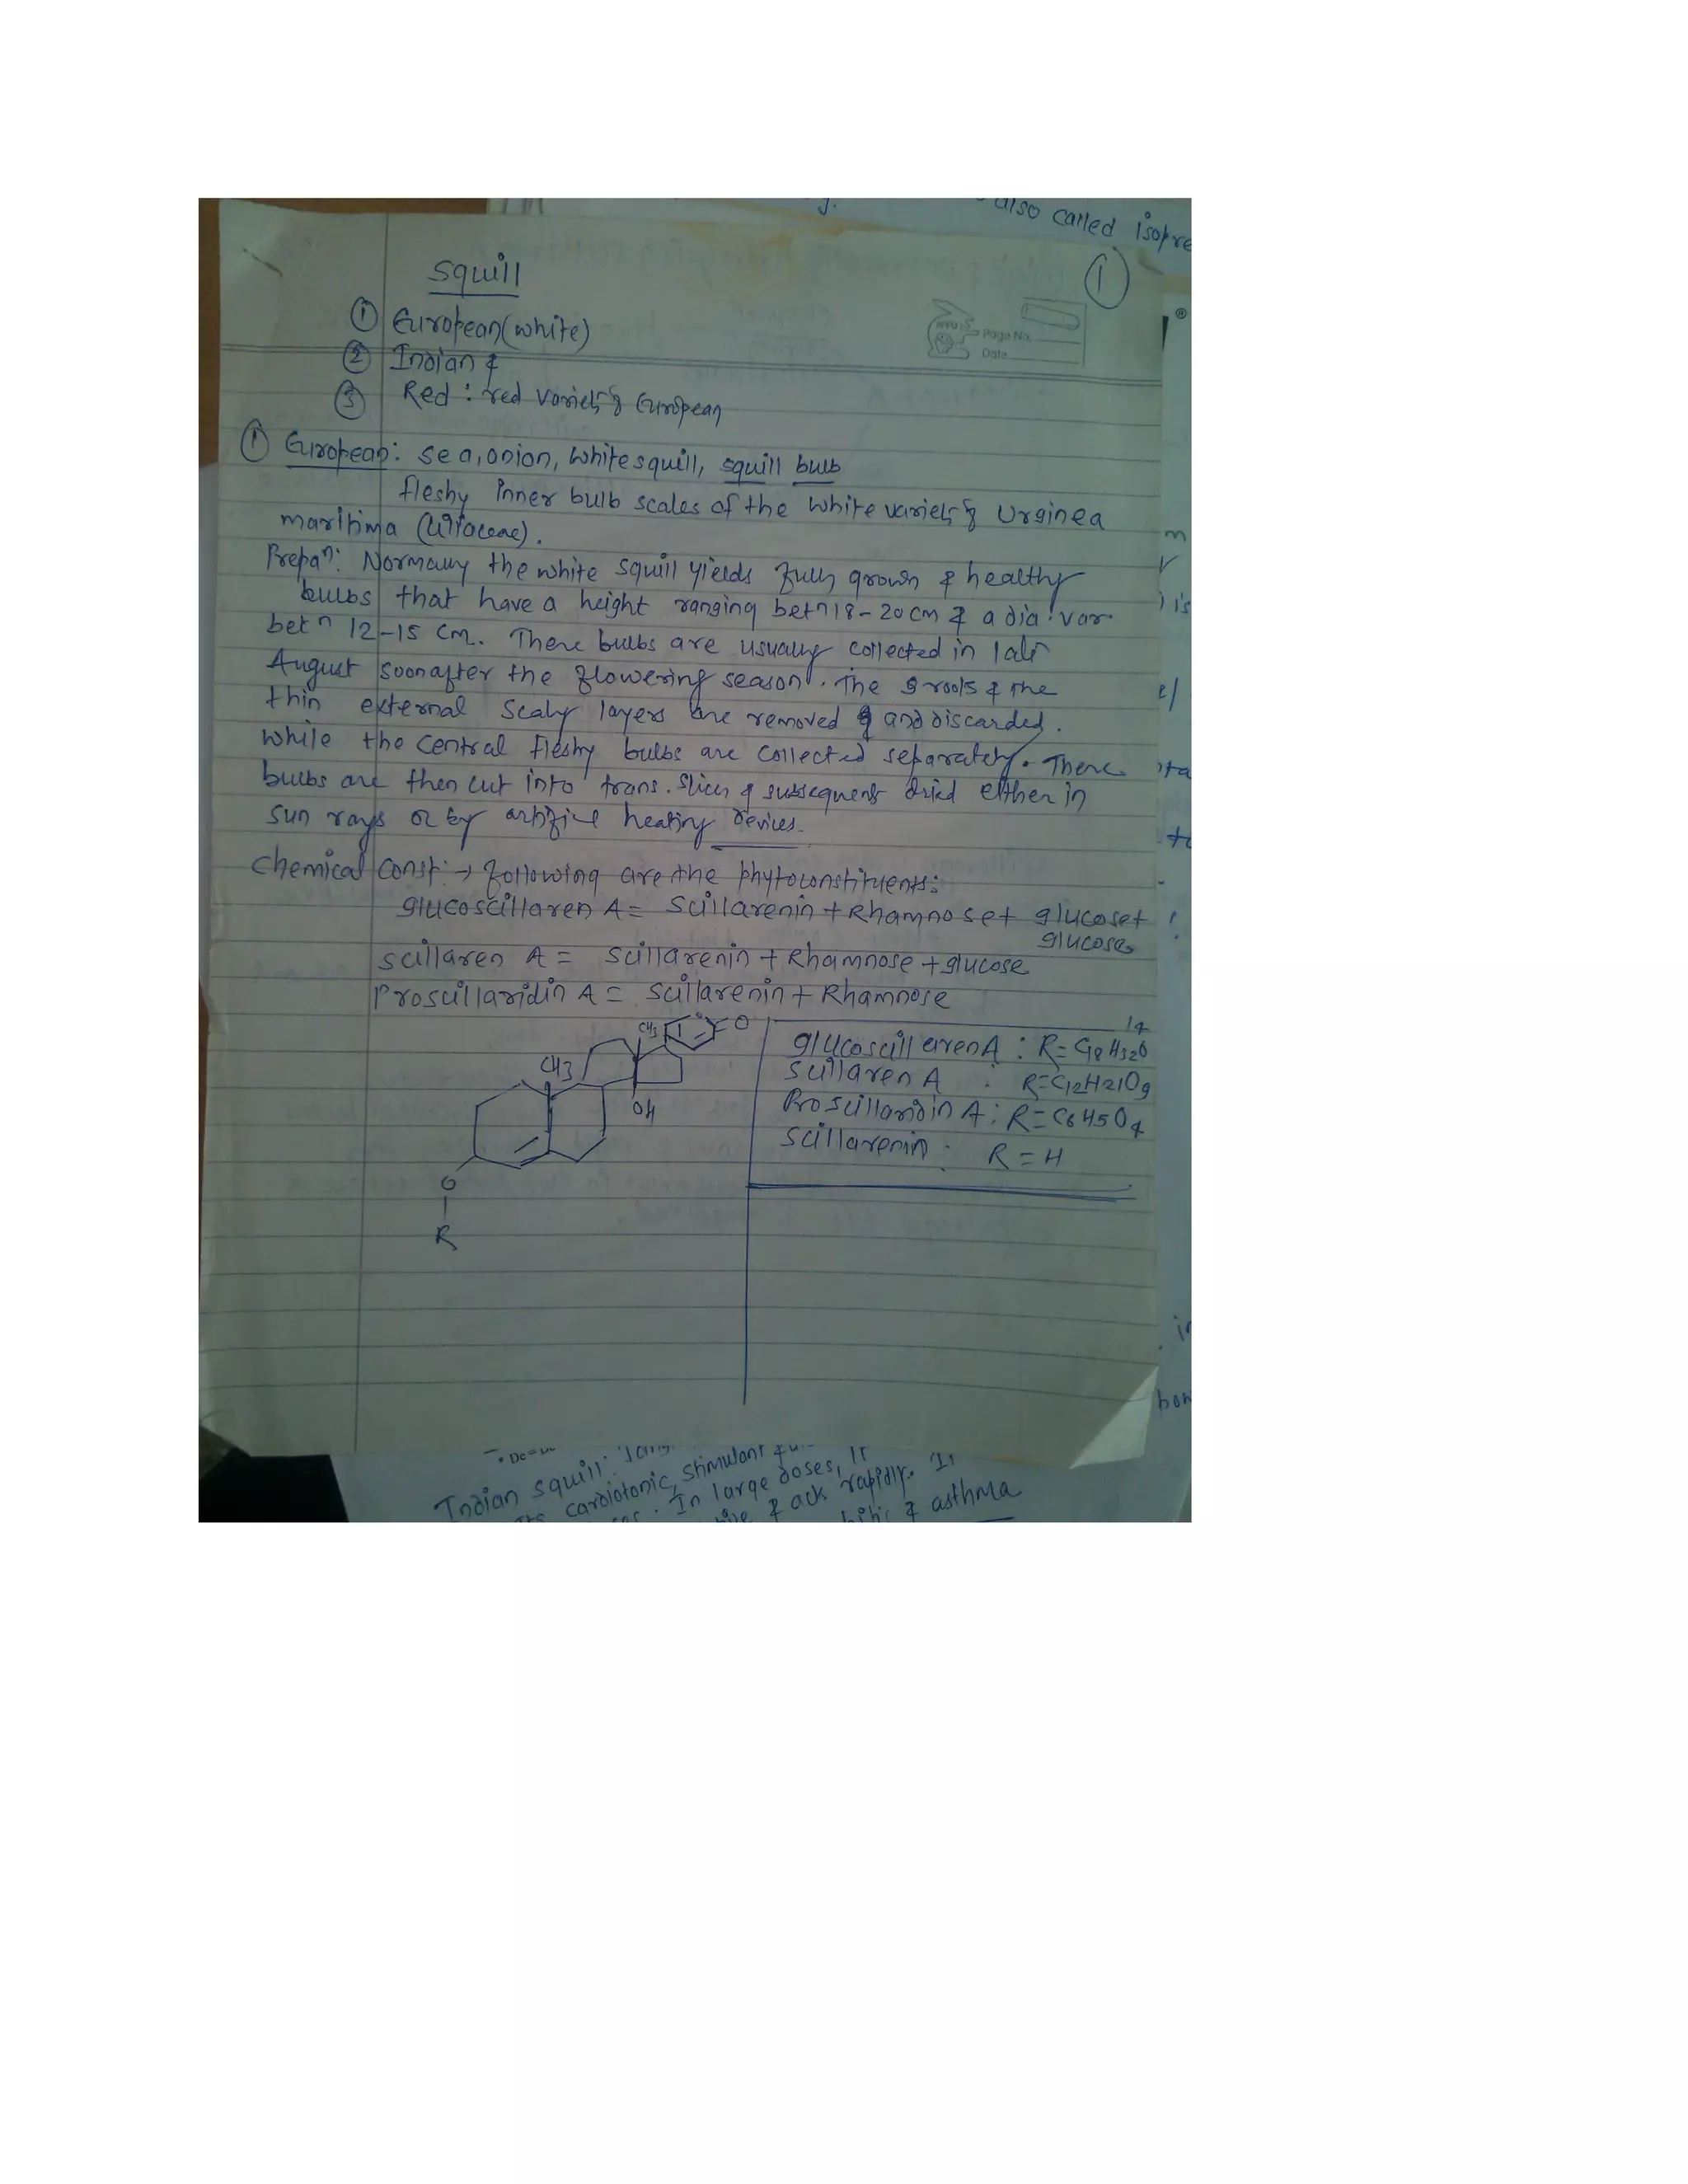 also called isopre
1
squill
① European(white)
Page No.
Date
② Indian &
③ Red : red variety of European
① European: sea, onion, white squill, squill bulb
fleshy inner bulb scales of the white variety of Urginea
maritima (Liliaceae).
Prepaⁿ: Normally the white squill yields fully grown & healthy
bulbs that have a height ranging betⁿ 18-20 cm & a dia. var.
betⁿ 12-15 cm. There bulbs are usually collected in late
August soon after the flowering season. The roots & the
thin external scaly layers are removed and discarded.
while the central fleshy bulbs are collected separately. There
bulbs are then cut into trans. slices & subsequent dried either in
sun rays or by artificial heating devices.
chemical const: → following are the phytoconstituents:
glucoscillaren A = Scillarenin + Rhamnose + glucose +
glucose
scillaren A = Scillarenin + Rhamnose + glucose
Proscillaridin A = scillarenin + Rhamnose
CH3 O
CH3
OH
O
R
glucoscillaren A : R= C18H32O14
Scillaren A : R=C12H21O9
Proscillaridin A : R= C6H5O4
scillarenin : R = H
Indian squill:
cardiotonic, stimulant
In large doses, it
& ack rapidly. It
& asthma